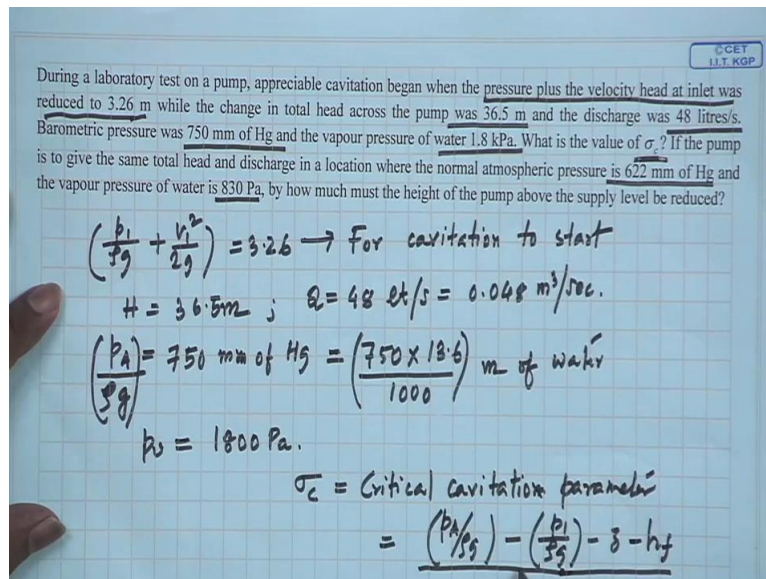 ©CET
I.I.T. KGP
During a laboratory test on a pump, appreciable cavitation began when the pressure plus the velocity head at inlet was
reduced to 3.26 m while the change in total head across the pump was 36.5 m and the discharge was 48 litres/s.
Barometric pressure was 750 mm of Hg and the vapour pressure of water 1.8 kPa. What is the value of σc? If the pump
is to give the same total head and discharge in a location where the normal atmospheric pressure is 622 mm of Hg and
the vapour pressure of water is 830 Pa, by how much must the height of the pump above the supply level be reduced?
(p1/ρg + V1²/2g) = 3.26 → For cavitation to start
H = 36.5m ; Q = 48 lt/s = 0.048 m³/sec.
(pA/ρg) = 750 mm of Hg = (750 × 13.6/1000) m of water
pv = 1800 Pa.
σc = Critical cavitation parameter
= (pA/ρg) - (p1/ρg) - z - hf